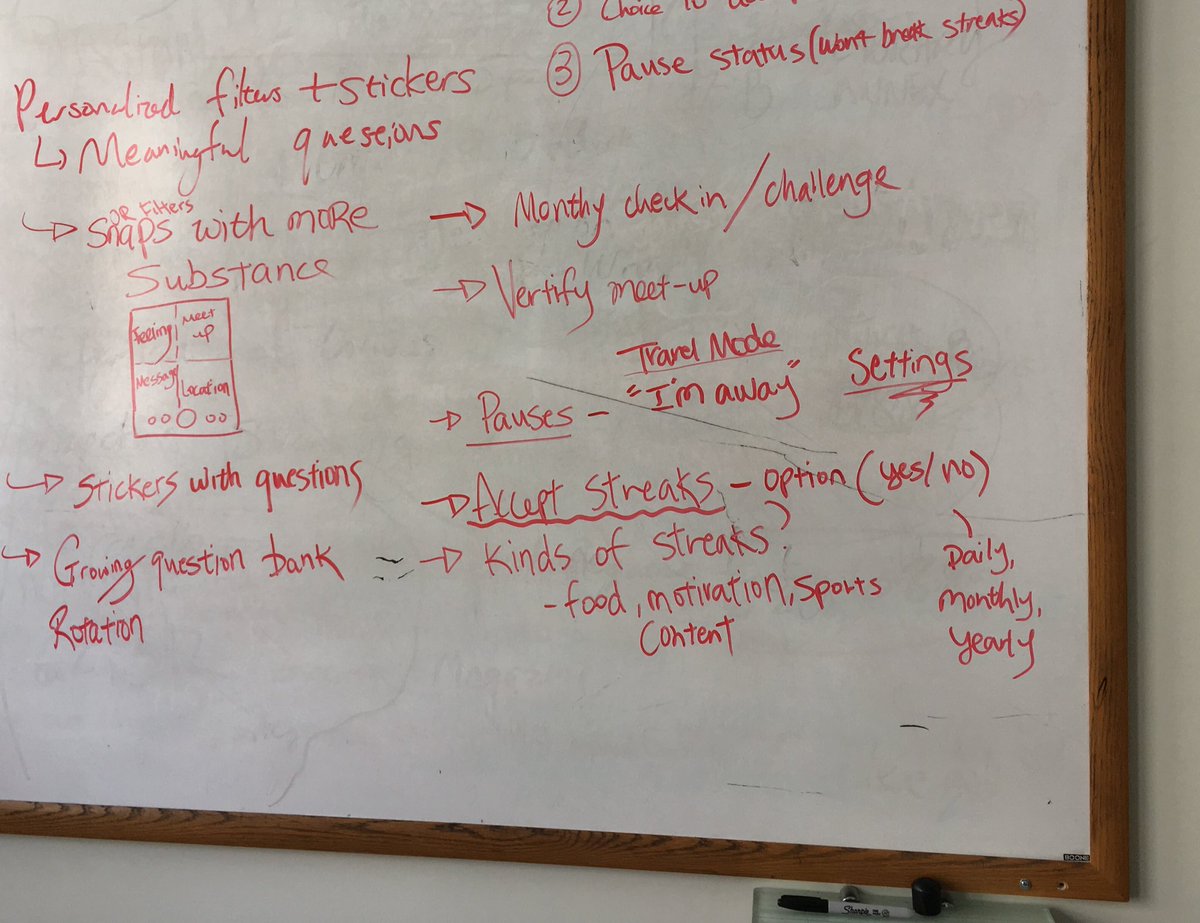 ② Choice to
③ Pause status (won't break streaks)
Personalized filters + stickers
↳ Meaningful queseions
OR Filters
→ Snaps with more
Substance
Feeling
Meet up
Message
Location
→ Stickers with questions
→ Growing question bank
Rotation
→ Monthy check in / challenge
→ Vertify meet-up
Travel Mode
→ Pauses - "I'm away"
Settings
→ Accept Streaks - option (yes/no)
Daily,
monthly,
yearly
→ Kinds of streaks?
- food, motivation, sports
Content
BOONE
Sharpie